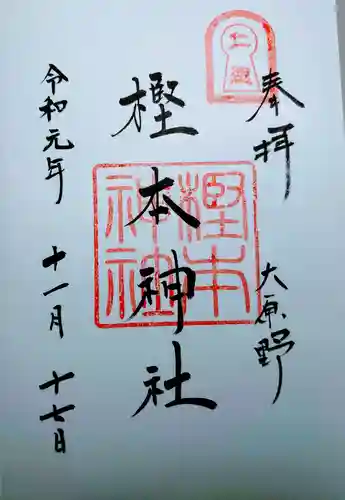 奉拝
大原野
樫本神社
樫本
神社
令和元年
十一月
十七日